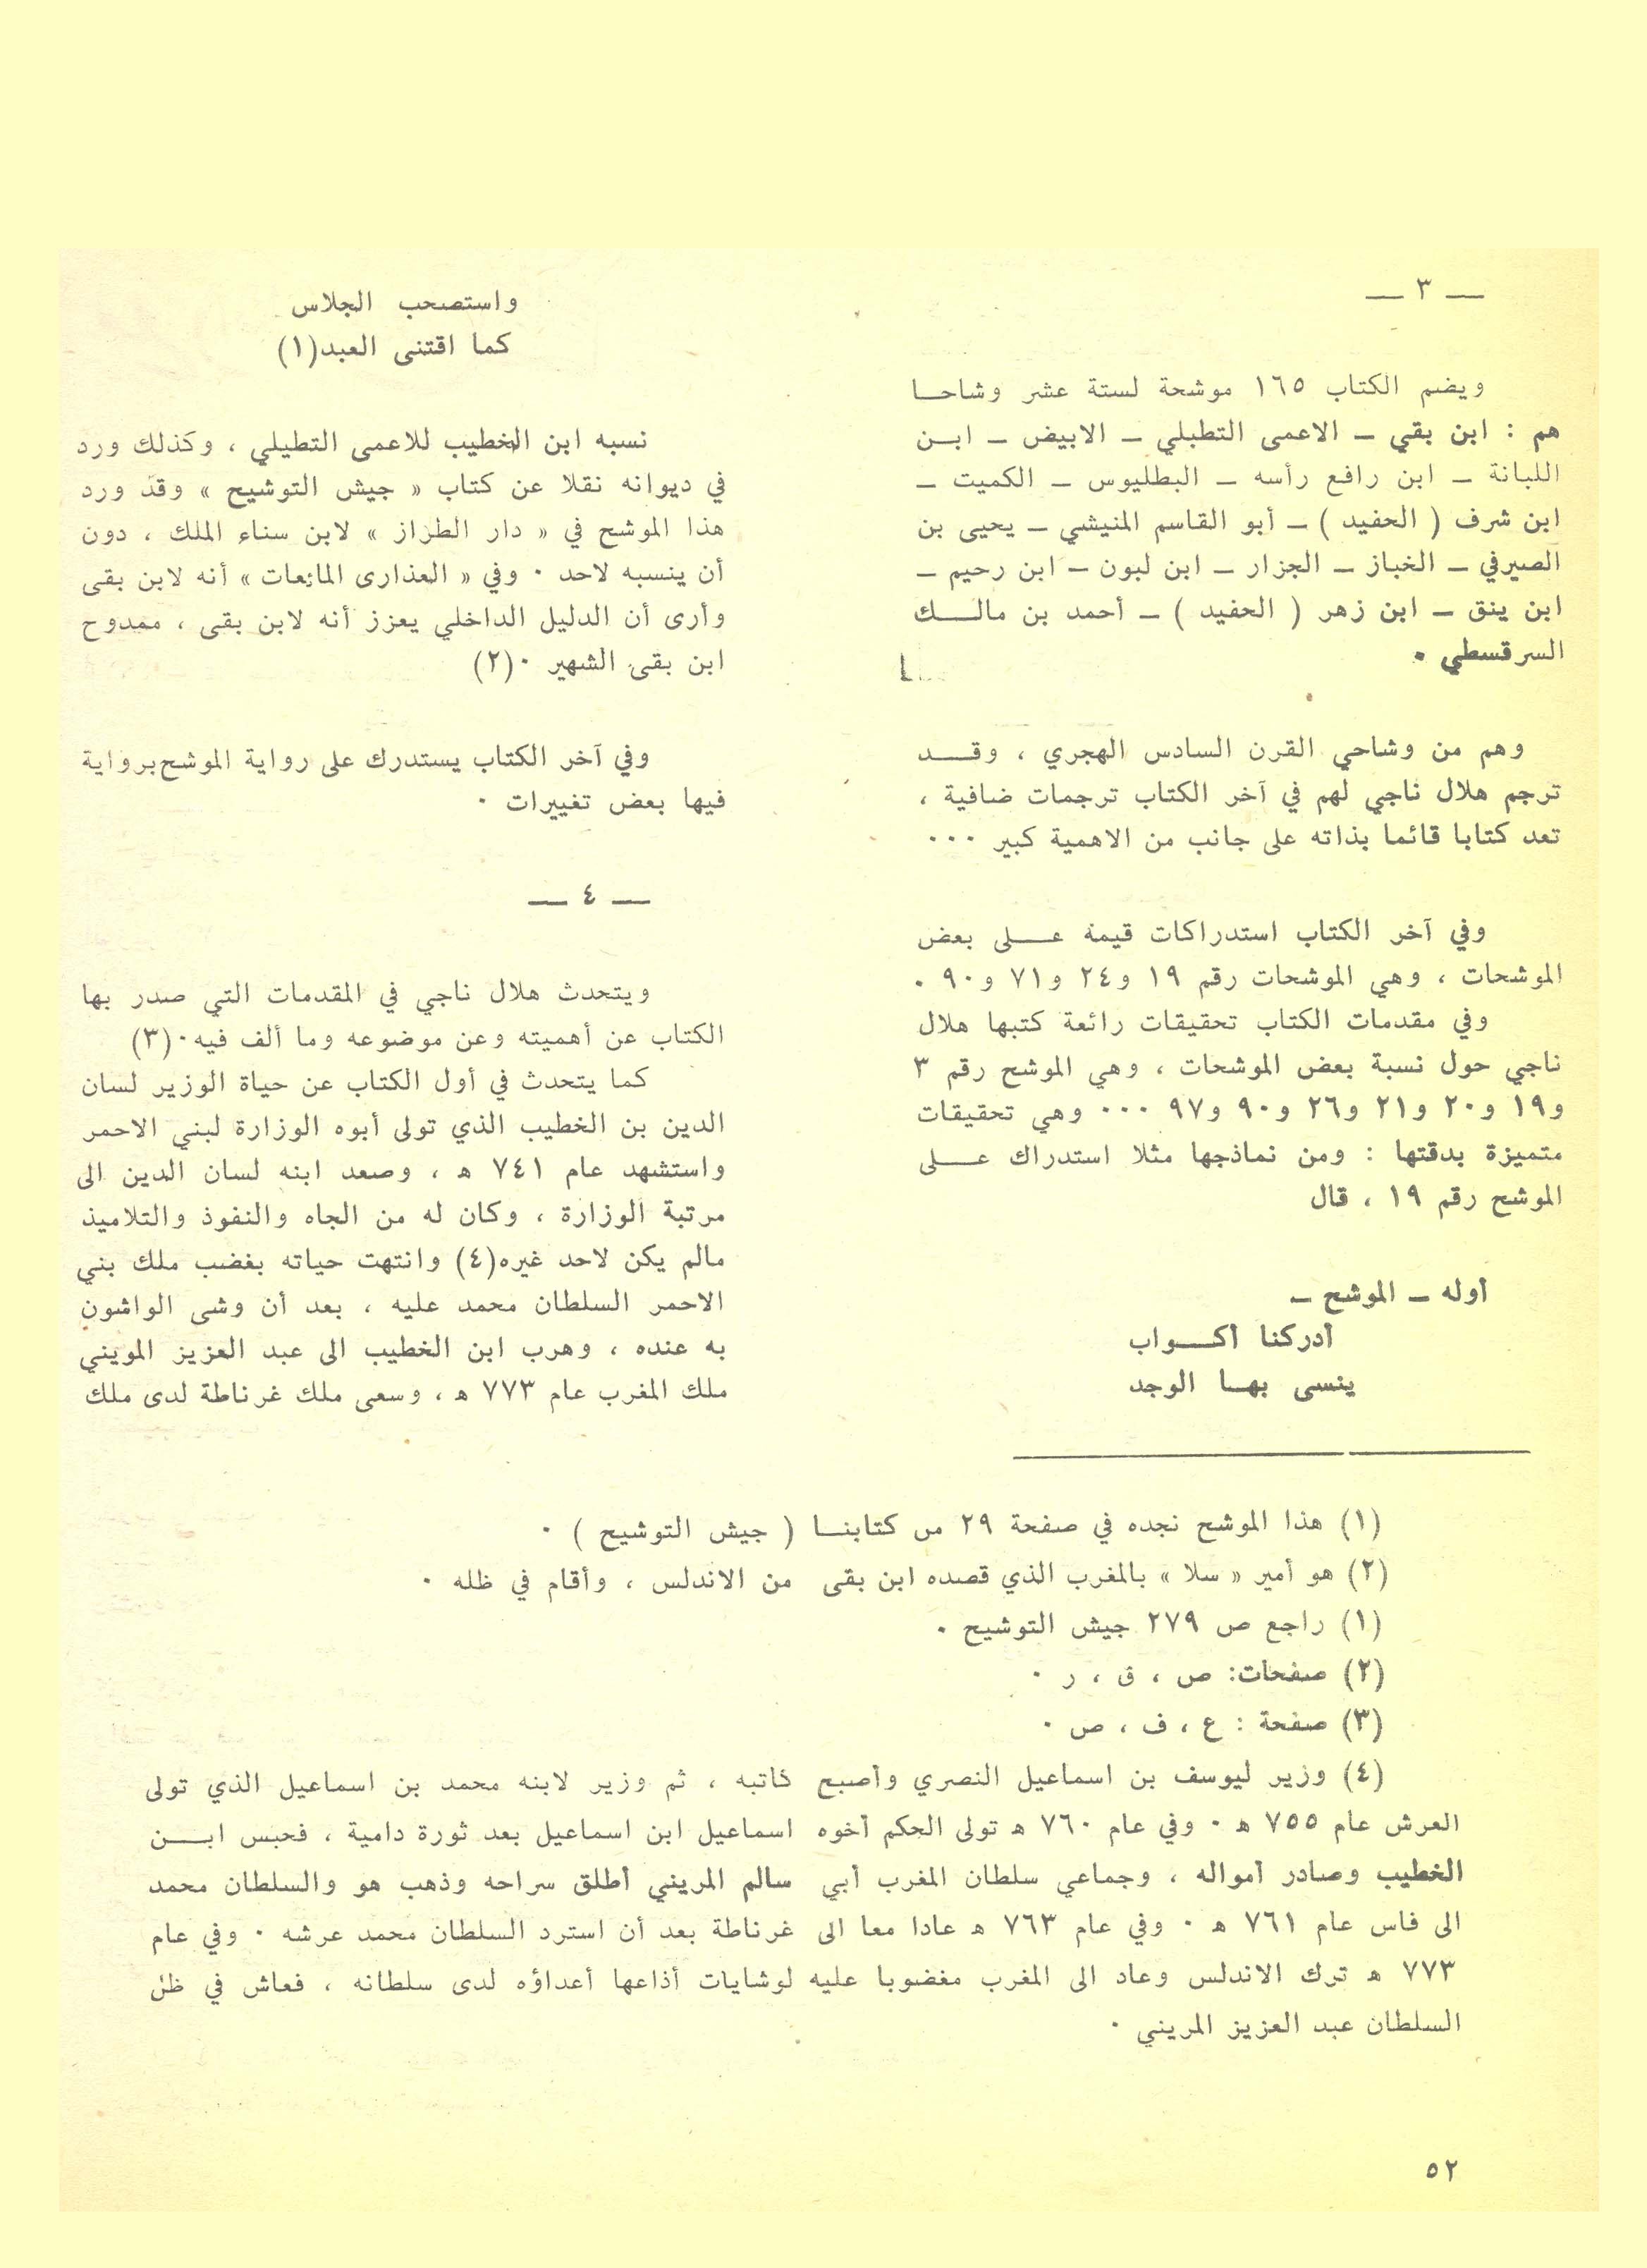 — ٣ —
ويضم الكتاب ١٦٥ موشحة لستة عشر وشاحـا
هم : ابن بقي – الاعمى التطيلي – الابيض – ابـن
اللبانة – ابن رافع رأسه – البطليوس – الكميت –
ابن شرف ( الحفيد ) – أبو القاسم المنيشي – يحيى بن
الصيرفي – الخباز – الجزار – ابن لبون – ابن رحيم –
ابن ينق – ابن زهر ( الحفيد ) – أحمد بن مالـك
السرقسطي ٠
وهم من وشاحي القرن السادس الهجري ، وقـد
ترجم هلال ناجي لهم في آخر الكتاب ترجمات ضافية ،
تعد كتابا قائما بذاته على جانب من الاهمية كبير ٠٠٠
وفي آخر الكتاب استدراكات قيمة عـلى بعض
الموشحات ، وهي الموشحات رقم ١٩ و٢٤ و٧١ و٩٠ ٠
وفي مقدمات الكتاب تحقيقات رائعة كتبها هلال
ناجي حول نسبة بعض الموشحات ، وهي الموشح رقم ٣
و١٩ و٢٠ و٢١ و٢٦ و٩٠ و٩٧ ٠٠٠ وهي تحقيقات
متميزة بدقتها : ومن نماذجها مثلا استدراك عـلى
الموشح رقم ١٩ ، قال
أوله – الموشح –
أدركنا أكـواب
ينسى بهـا الوجد
واستصحب الجلاس
كما اقتنى العبد(١)
نسبه ابن الخطيب للاعمى التطيلي ، وكذلك ورد
في ديوانه نقلا عن كتاب « جيش التوشيح » وقد ورد
هذا الموشح في « دار الطراز » لابن سناء الملك ، دون
أن ينسبه لاحد ٠ وفي « العذارى المائعات » أنه لابن بقى
وأرى أن الدليل الداخلي يعزز أنه لابن بقى ، ممدوح
ابن بقى الشهير ٠(٢)
وفي آخر الكتاب يستدرك على رواية الموشح برواية
فيها بعض تغييرات ٠
— ٤ —
ويتحدث هلال ناجي في المقدمات التي صدر بها
الكتاب عن أهميته وعن موضوعه وما ألف فيه٠(٣)
كما يتحدث في أول الكتاب عن حياة الوزير لسان
الدين بن الخطيب الذي تولى أبوه الوزارة لبني الاحمر
واستشهد عام ٧٤١ هـ ، وصعد ابنه لسان الدين الى
مرتبة الوزارة ، وكان له من الجاه والنفوذ والتلاميذ
مالم يكن لاحد غيره(٤) وانتهت حياته بغضب ملك بني
الاحمر السلطان محمد عليه ، بعد أن وشى الواشون
به عنده ، وهرب ابن الخطيب الى عبد العزيز المويني
ملك المغرب عام ٧٧٣ هـ ، وسعى ملك غرناطة لدى ملك
(١) هذا الموشح نجده في صفحة ٢٩ من كتابنـا ( جيش التوشيح ) ٠
(٢) هو أمير « سلا » بالمغرب الذي قصده ابن بقى من الاندلس ، وأقام في ظله ٠
(١) راجع ص ٢٧٩ جيش التوشيح ٠
(٢) صفحات: ص ، ق ، ر ٠
(٣) صفحة : ع ، ف ، ص ٠
(٤) وزير ليوسف بن اسماعيل النصري وأصبح كاتبه ، ثم وزير لابنه محمد بن اسماعيل الذي تولى
العرش عام ٧٥٥ هـ ٠ وفي عام ٧٦٠ هـ تولى الحكم أخوه اسماعيل ابن اسماعيل بعد ثورة دامية ، فحبس ابـن
الخطيب وصادر أمواله ، وجماعي سلطان المغرب أبي سالم المريني أطلق سراحه وذهب هو والسلطان محمد
الى فاس عام ٧٦١ هـ ٠ وفي عام ٧٦٣ هـ عادا معا الى غرناطة بعد أن استرد السلطان محمد عرشه ٠ وفي عام
٧٧٣ هـ ترك الاندلس وعاد الى المغرب مغضوبا عليه لوشايات أذاعها أعداؤه لدى سلطانه ، فعاش في ظل
السلطان عبد العزيز المريني ٠
٥٢